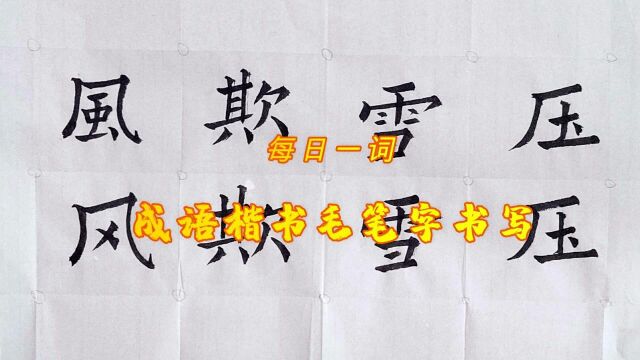 風欺雪压
每日一词
风欺雪压
成语楷书毛笔字书写